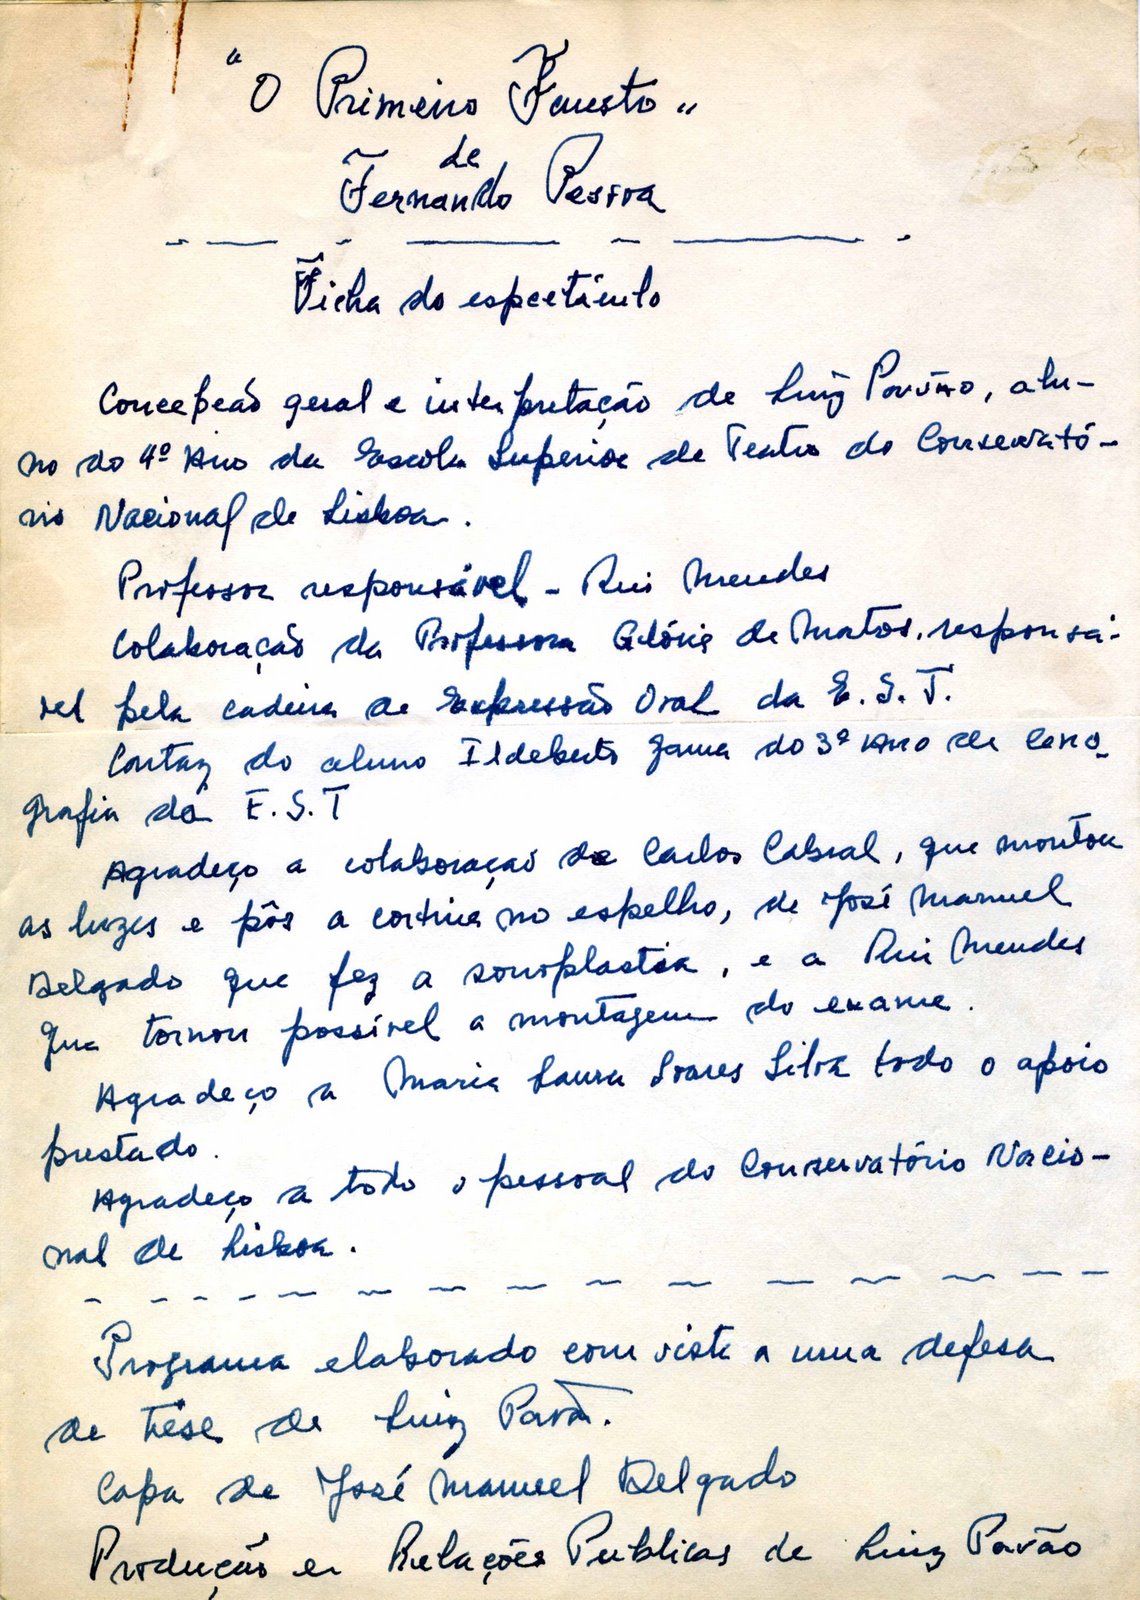 "O Primeiro Fausto"
de
Fernando Pessoa
Ficha do espectáculo
Concepção geral e interpretação de Luiz Pavão, alu-
no do 4º Ano da Escola Superior de Teatro do Conservató-
rio Nacional de Lisboa.
Professor responsável - Rui Mendes
Colaboração da Professora Glória de Matos, responsá-
vel pela cadeira de Expressão Oral da E. S. T.
Cartaz do aluno Ildeberto Gama do 3º Ano de Ceno-
grafia da E. S. T
Agradeço a colaboração de Carlos Cabral, que montou
as luzes e pôs a cortina no espelho, de José Manuel
Delgado que fez a sonoplastia, e a Rui Mendes
que tornou possível a montagem do exame.
Agradeço a Maria Laura Soares Silva todo o apoio
prestado.
Agradeço a todo o pessoal do Conservatório Nacio-
nal de Lisboa.
Programa elaborado com vista a uma defesa
de tése de Luiz Pavão.
Capa de José Manuel Delgado
Produção e Relações Publicas de Luiz Pavão